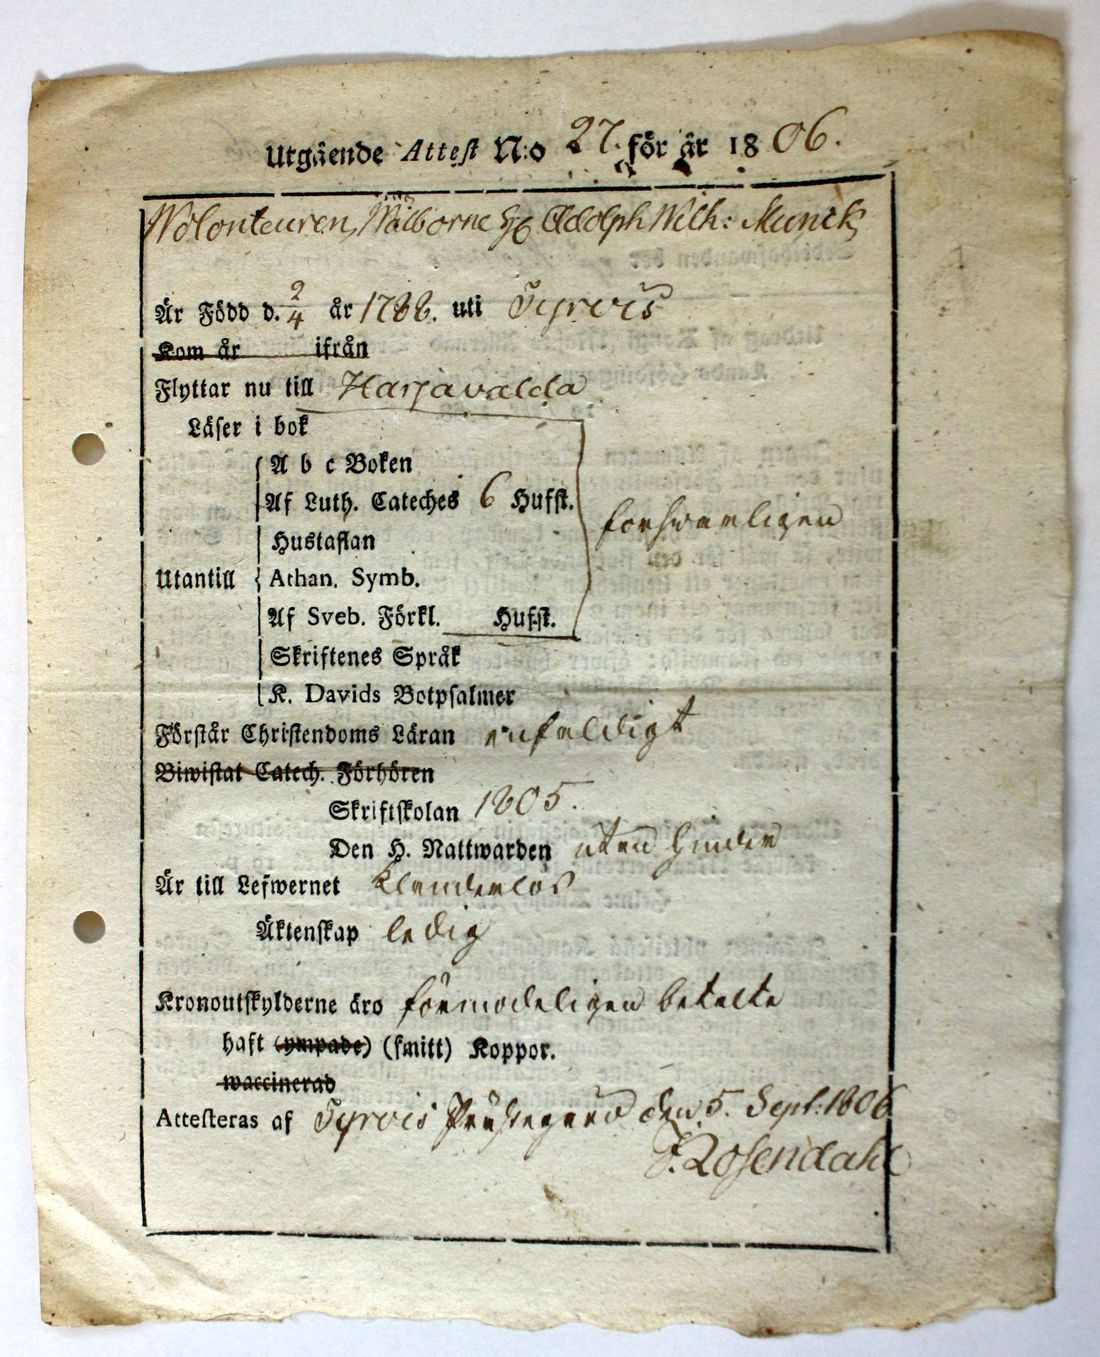 Utgående Attest N:o 27. för år 1806.
Wolonteuren, Wälborne H Adolph Wilh: Munck
Är Född d. 2/4 år 1788. uti Tyrvis
Kom år ifrån
Flyttar nu till Harjavalda
Läser i bok
A b c Boken
Af Luth. Cateches 6 Hufst.
försvarligen
Hustaflan
Utantill Athan. Symb.
Af Sveb. Förkl. Hufst.
Skriftenes Språk
K. Davids Botpsalmer
Förstår Christendoms Läran enfaldigt
Biwistat Catech. Förhören
Skriftskolan 1805.
Den H. Nattwarden utan hinder
Är till Lefwernet klanderlös
Äktenskap ledig
Kronoutskylderne äro förmodeligen betalte
haft (ympade) (smitt) Koppor.
waccinerad
Attesteras af Tyrvis Prästegård den 5. Sept: 1806
F. Rosendahl